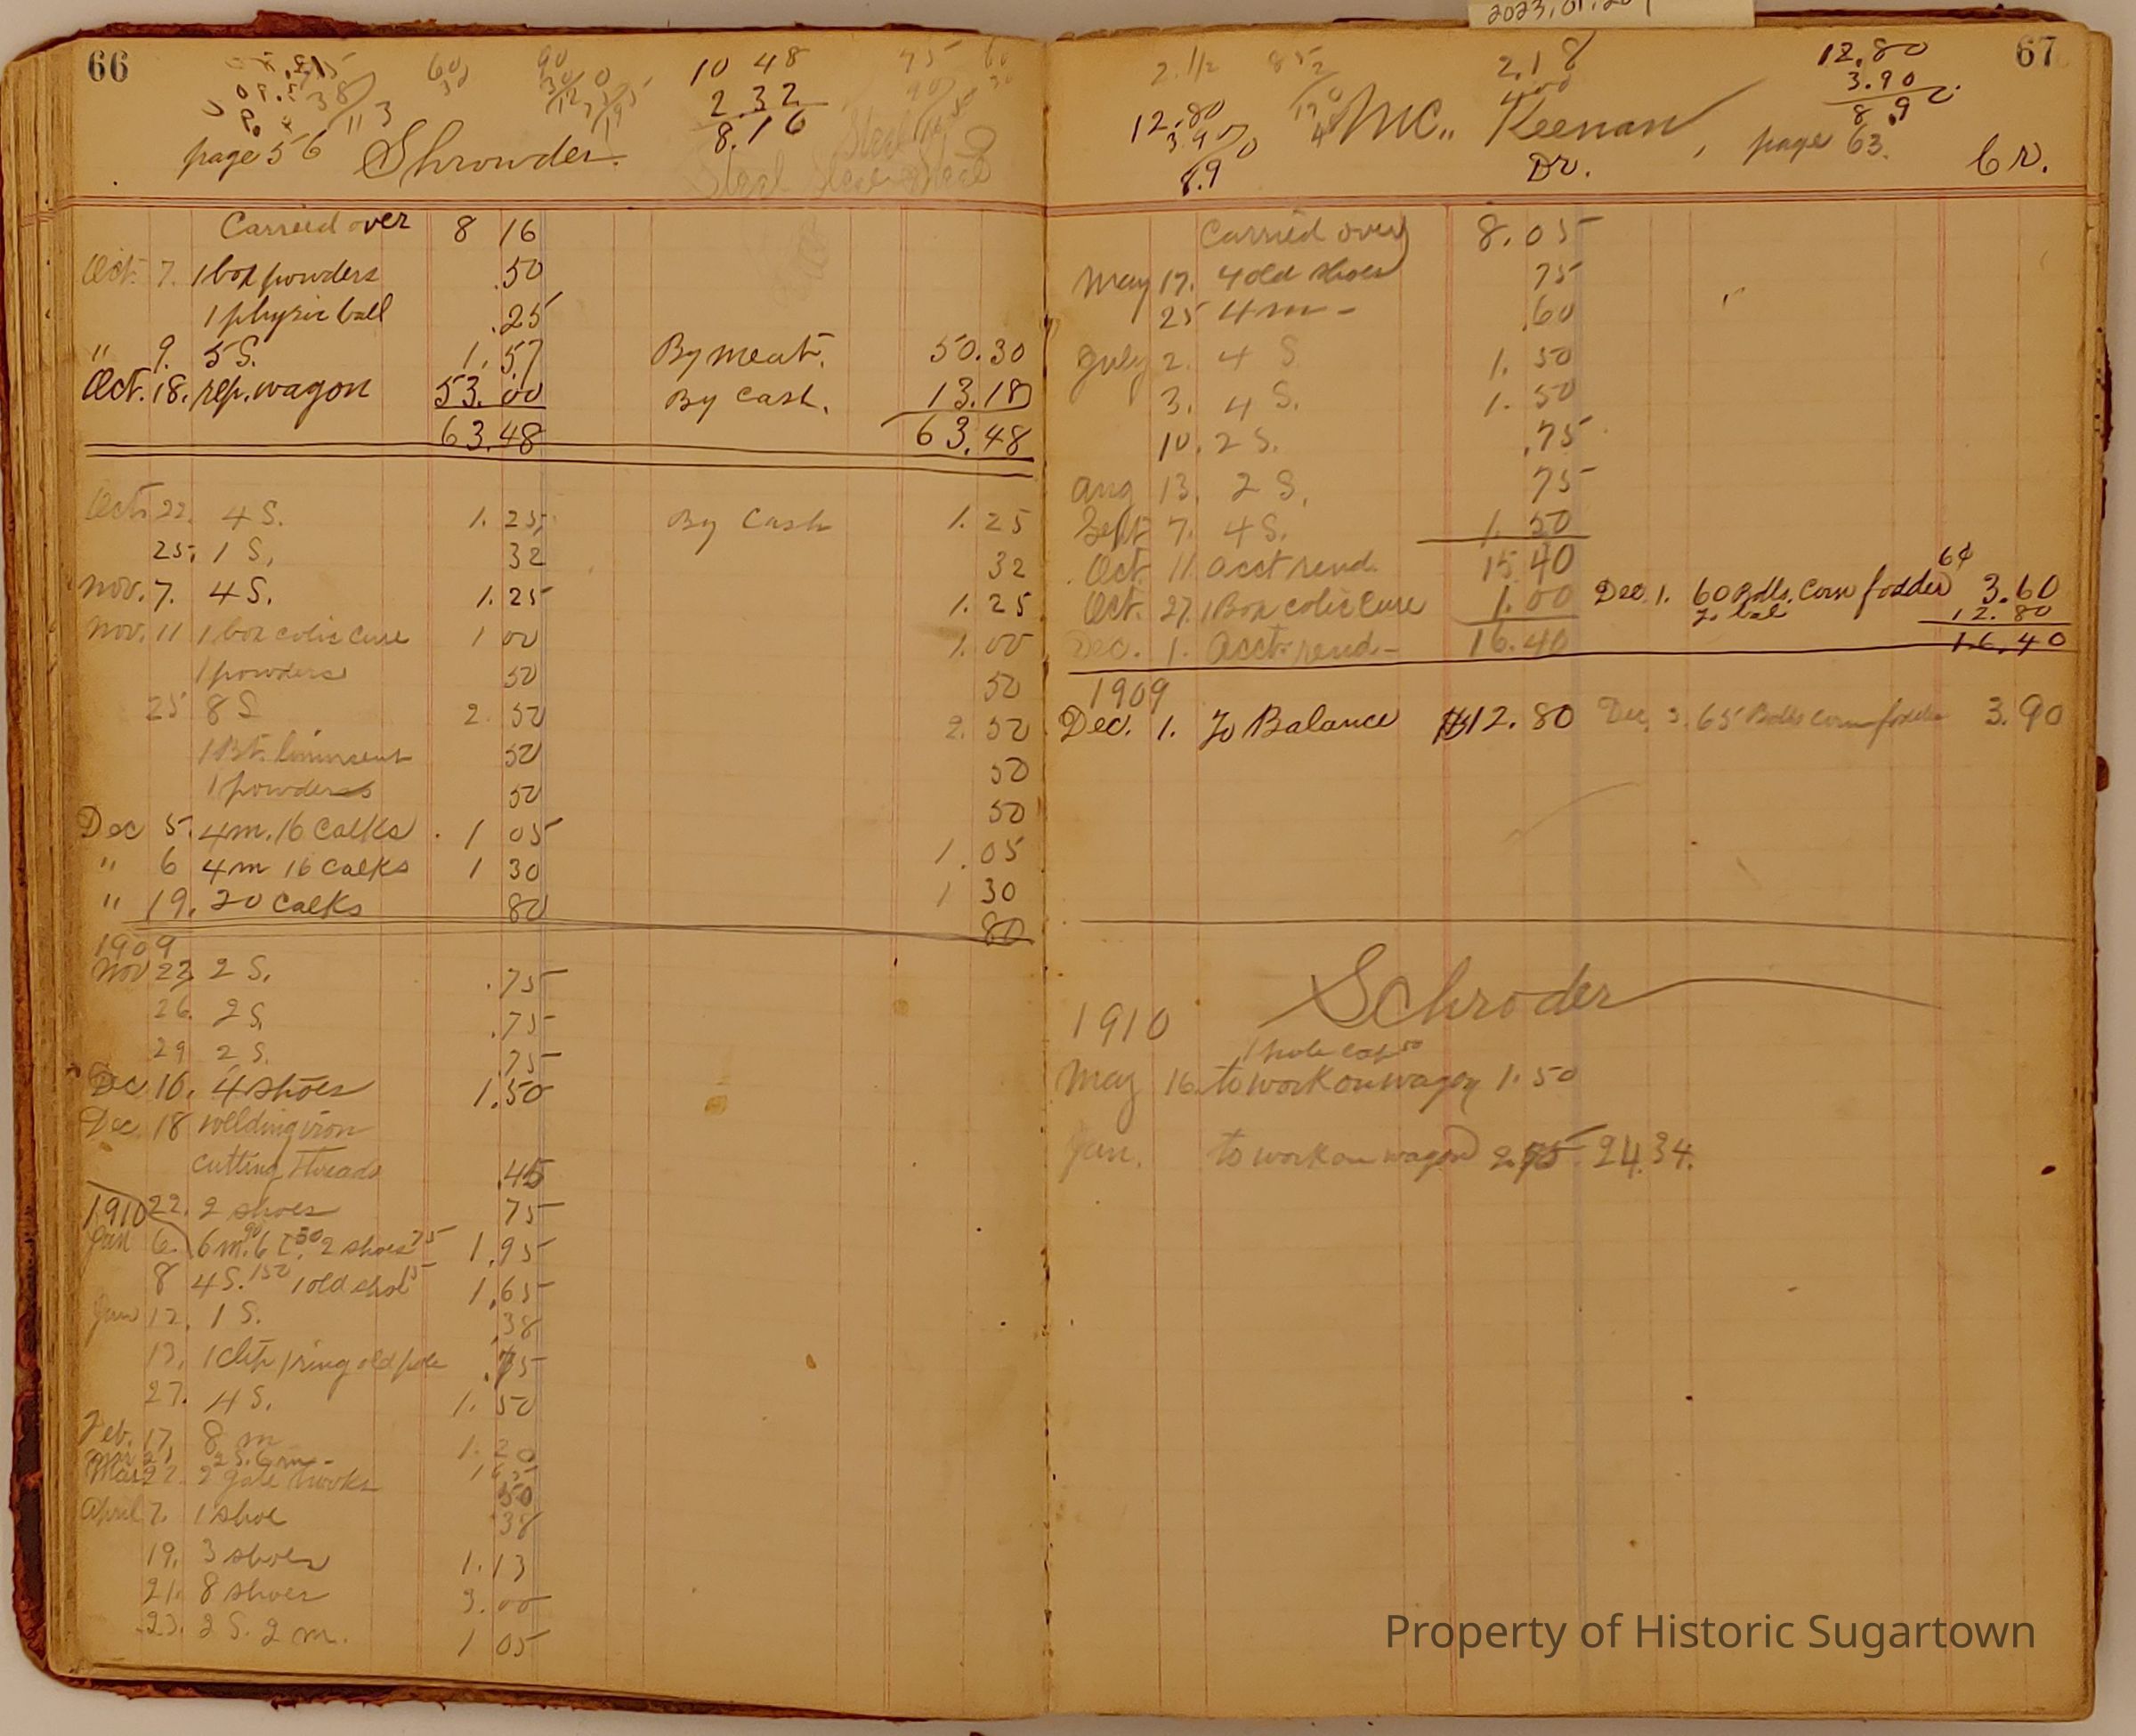 66
10 48
2 32
8.16
page 56 Shrowder.
Carried over 8 16
Oct. 7. 1 box powders .50
1 physic ball .25
" 9. 5 S. 1.57 By meat. 50.30
Oct. 18. rep. wagon 53.00 By Cash. 13.18
63.48 63.48
Oct. 22. 4 S. 1.25 By Cash 1.25
25. 1 S. 32 32
Nov. 7. 4 S. 1.25 1.25
Nov. 11 1 box colic cure 1 00 1.00
1 powders 50 50
25 8 S 2.50 2.50
1 Bt. liniment 50 50
1 powders 50 50
Dec 5. 4 m. 16 Calks 1 05 1.05
" 6 4 m 16 Calks 1 30 1 30
" 19. 20 Calks 80 80
1909
Nov 22 2 S. .75
26. 2 S. .75
29 2 S. .75
Dec 16. 4 shoes 1.50
Dec. 18 welding iron
cutting threads .45
22. 2 shoes 75
1910
Jan 6. 6 m. 90 6 c. 30 2 shoes 75 1.95
8 4 S. 150 1 old shoe 15 1.65
Jan 12. 1 S. .38
13. 1 clip 1 ring old pole
27. 4 S. 1.50
Feb. 17 8 m 1.20
2 S. 6 m. 1 65
Mar 22. 2 gate hooks 50
April 7. 1 shoe 38
19. 3 shoes 1.13
21. 8 shoes 3.00
23. 2 S. 2 m. 1 05
2023.01.20
67
12.80
3.90
8.9
2.18
12.80
3.90
8.90
Mc,, Keenan, page 63.
Dr. Cr.
Carried over 8.05
May 17. 4 old shoes 75
25 4 m - .60
July 2. 4 S 1.50
3. 4 S. 1.50
10. 2 S. .75
Aug 13. 2 S. 75
Sept 7. 4 S. 1.50
Oct. 11 acct rend. 15 40
6¢
Oct. 27. 1 Box colic cure 1.00 Dec. 1. 60 Bdls. corn fodder 3.60
To bal 12.80
Dec. 1. Acct. rend - 16.40 16.40
1909
Dec. 1. To Balance $12.80 Dec. 3. 65 Bdls corn fodder 3.90
Schroder
1910
1 pole cap 50
May 16. to work on wagon 1.50
Jan. to work on wagon 24.34.
Property of Historic Sugartown